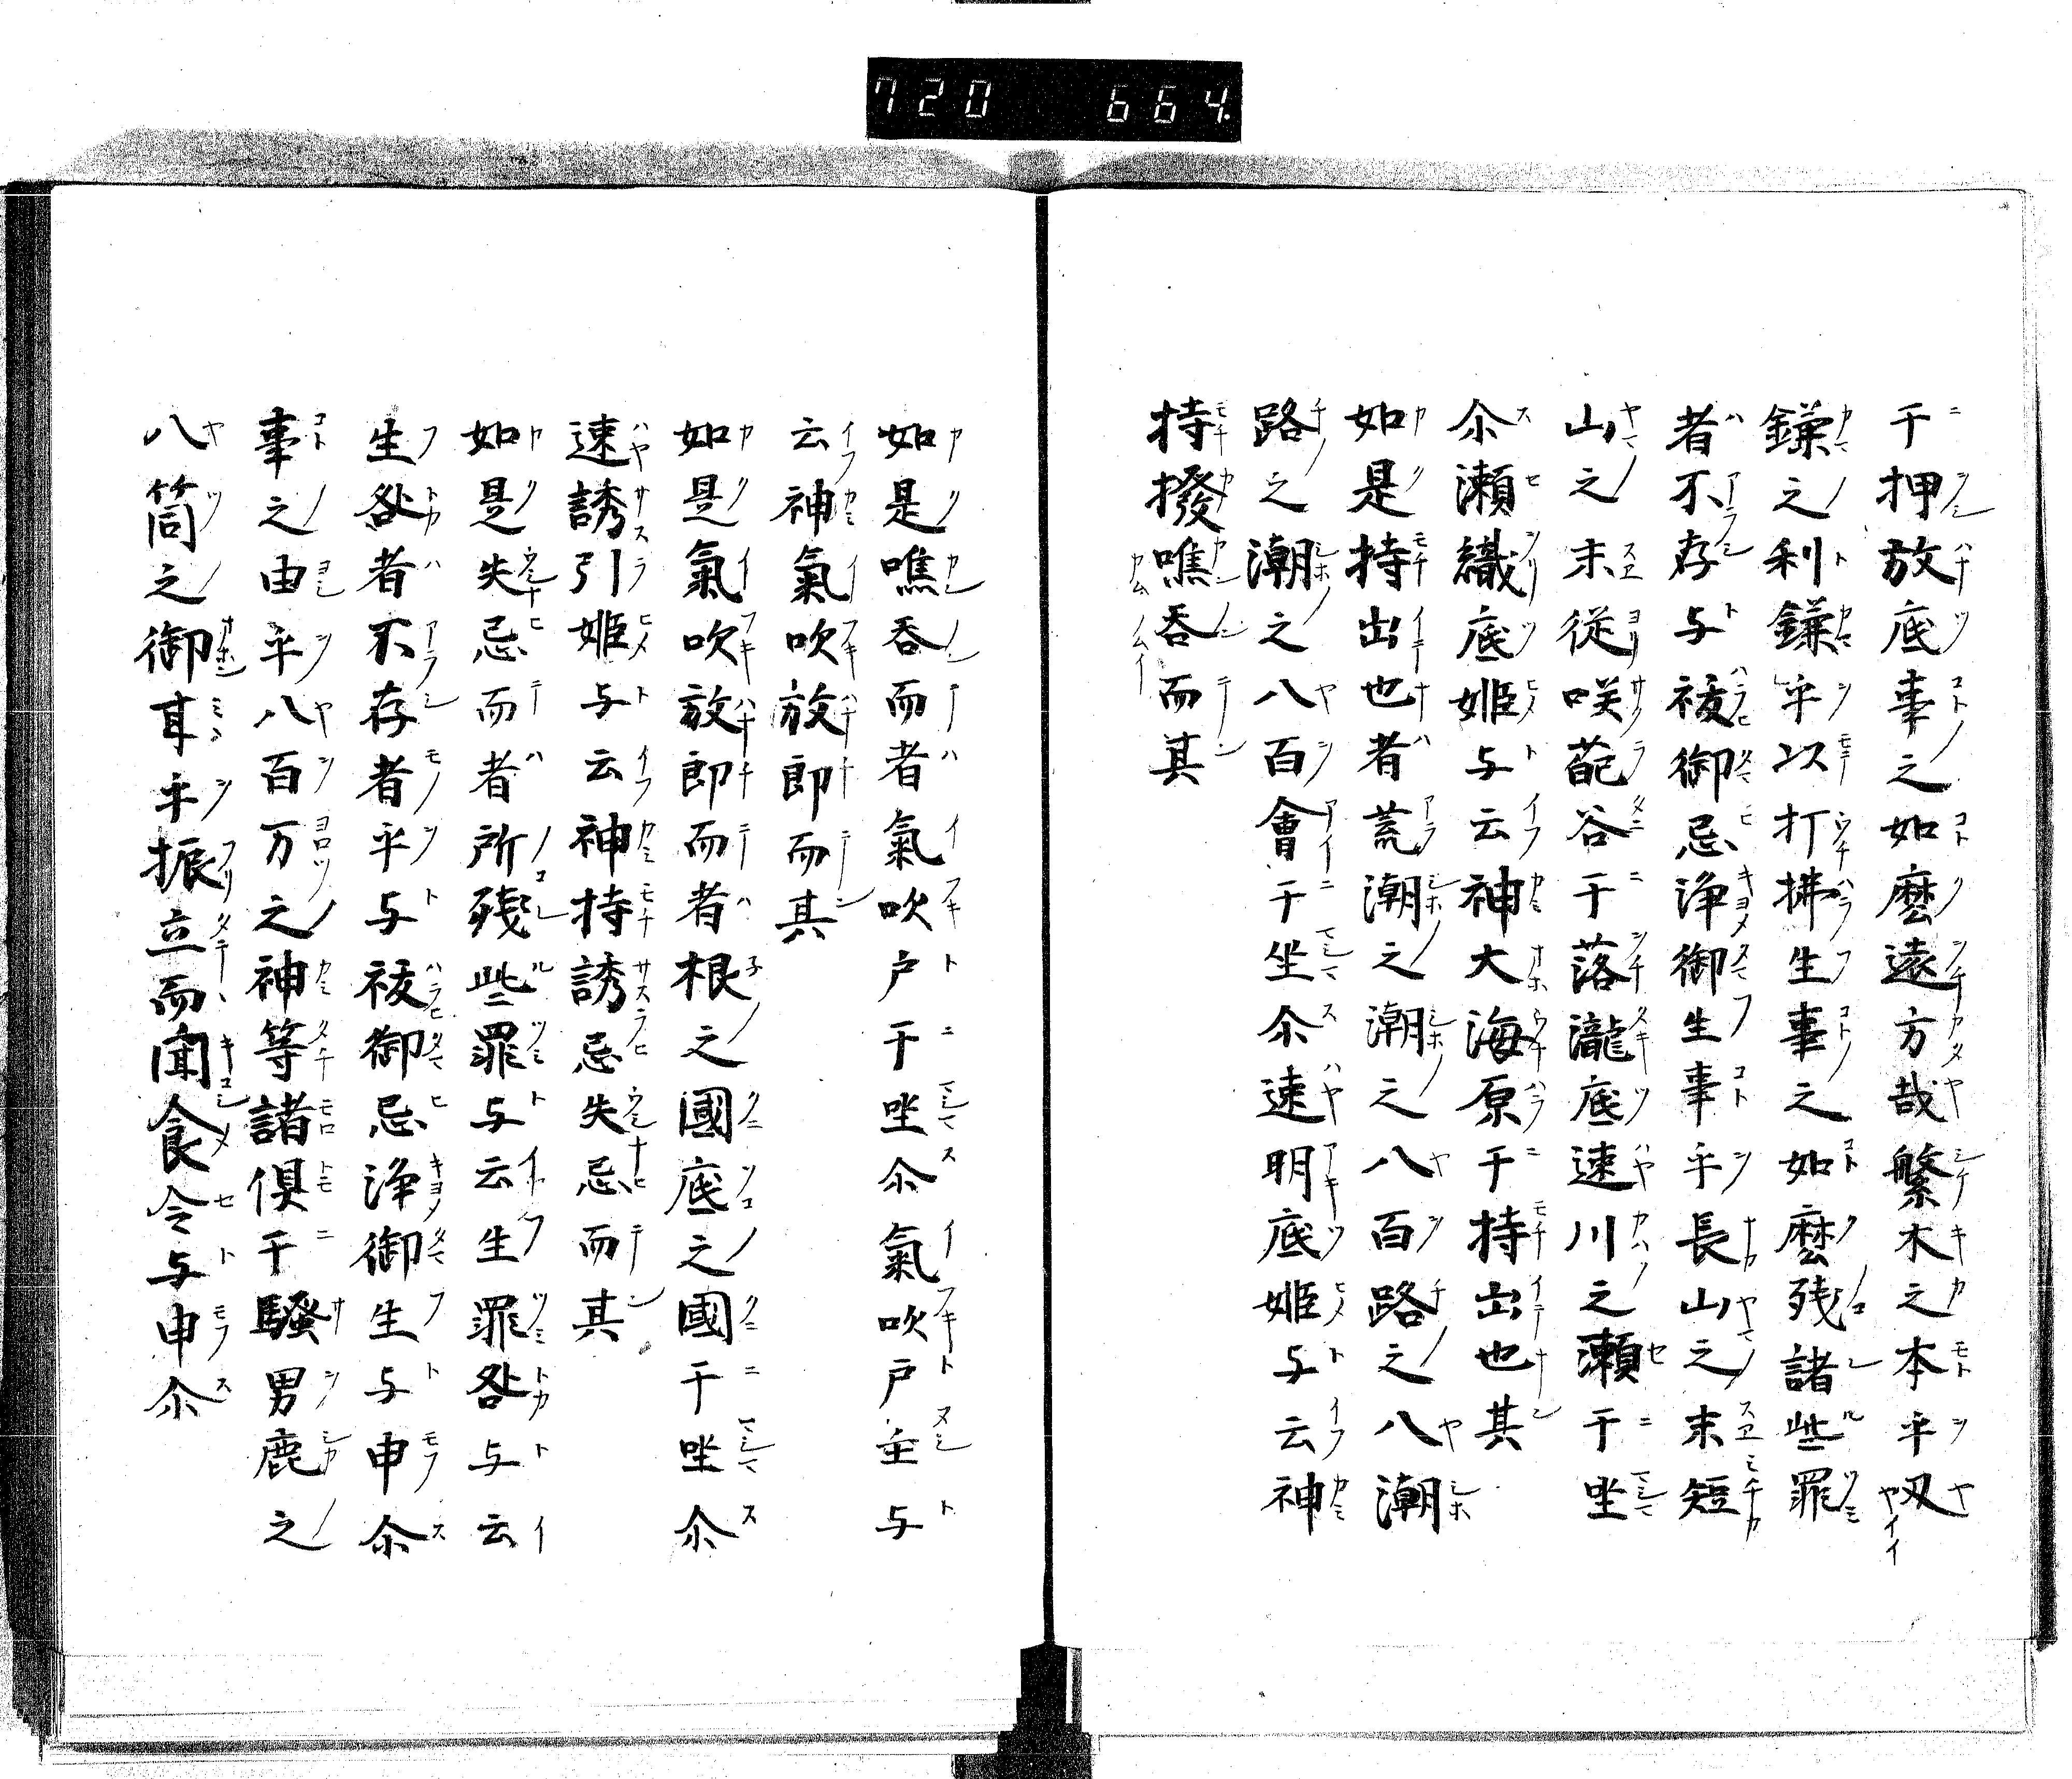 720 664.
于押放底事之如麽遠方哉繁木之本乎刄
鎌之利鎌乎以打拂生事之如麽残諸些罪
者不存与祓御忌浄御生事乎長山之末短
山之末従咲葩谷于落瀧底速川之瀬于坐
尒瀬織底姫与云神大海原于持出也其
如是持出也者荒潮之潮之八百路之八潮
路之潮之八百會于坐尒速明底姫与云神
持撥噍吞而其
如是噍吞而者氣吹户于坐尒氣吹户主与
云神氣吹放即而其
如是氣吹放即而者根之國底之國于坐尒
速誘引姫与云神持誘忌失忌而其
如是失忌而者所残些罪与云生罪咎与云
生咎者不存者乎与祓御忌浄御生与申尒
事之由乎八百万之神等諸俱于騷男鹿之
八箇之御耳乎振立而聞食令与申尒